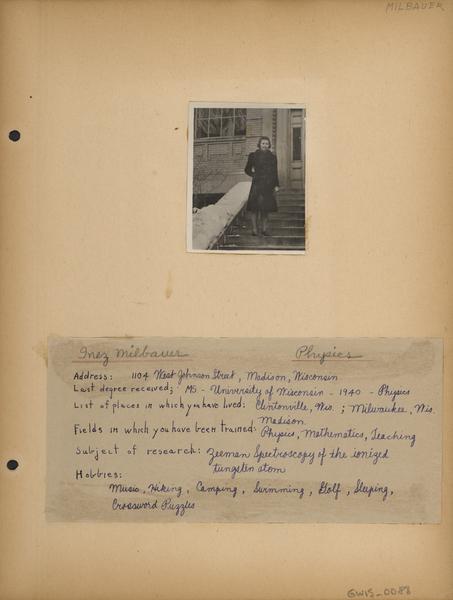 MILBAUER
Inez Milbauer Physics
Address: 1104 West Johnson Street, Madison, Wisconsin
Last degree received; MS - University of Wisconsin - 1940 - Physics
List of places in which you have lived: Clintonville, Wis. ; Milwaukee, Wis.
Madison
Fields in which you have been trained: Physics, Mathematics, Teaching
Subject of research: Zeeman Spectroscopy of the ionized
tungsten atom
Hobbies:
Music, Hiking, Camping, Swimming, Golf, Sleeping,
Crossword Puzzles
GWIS_0088